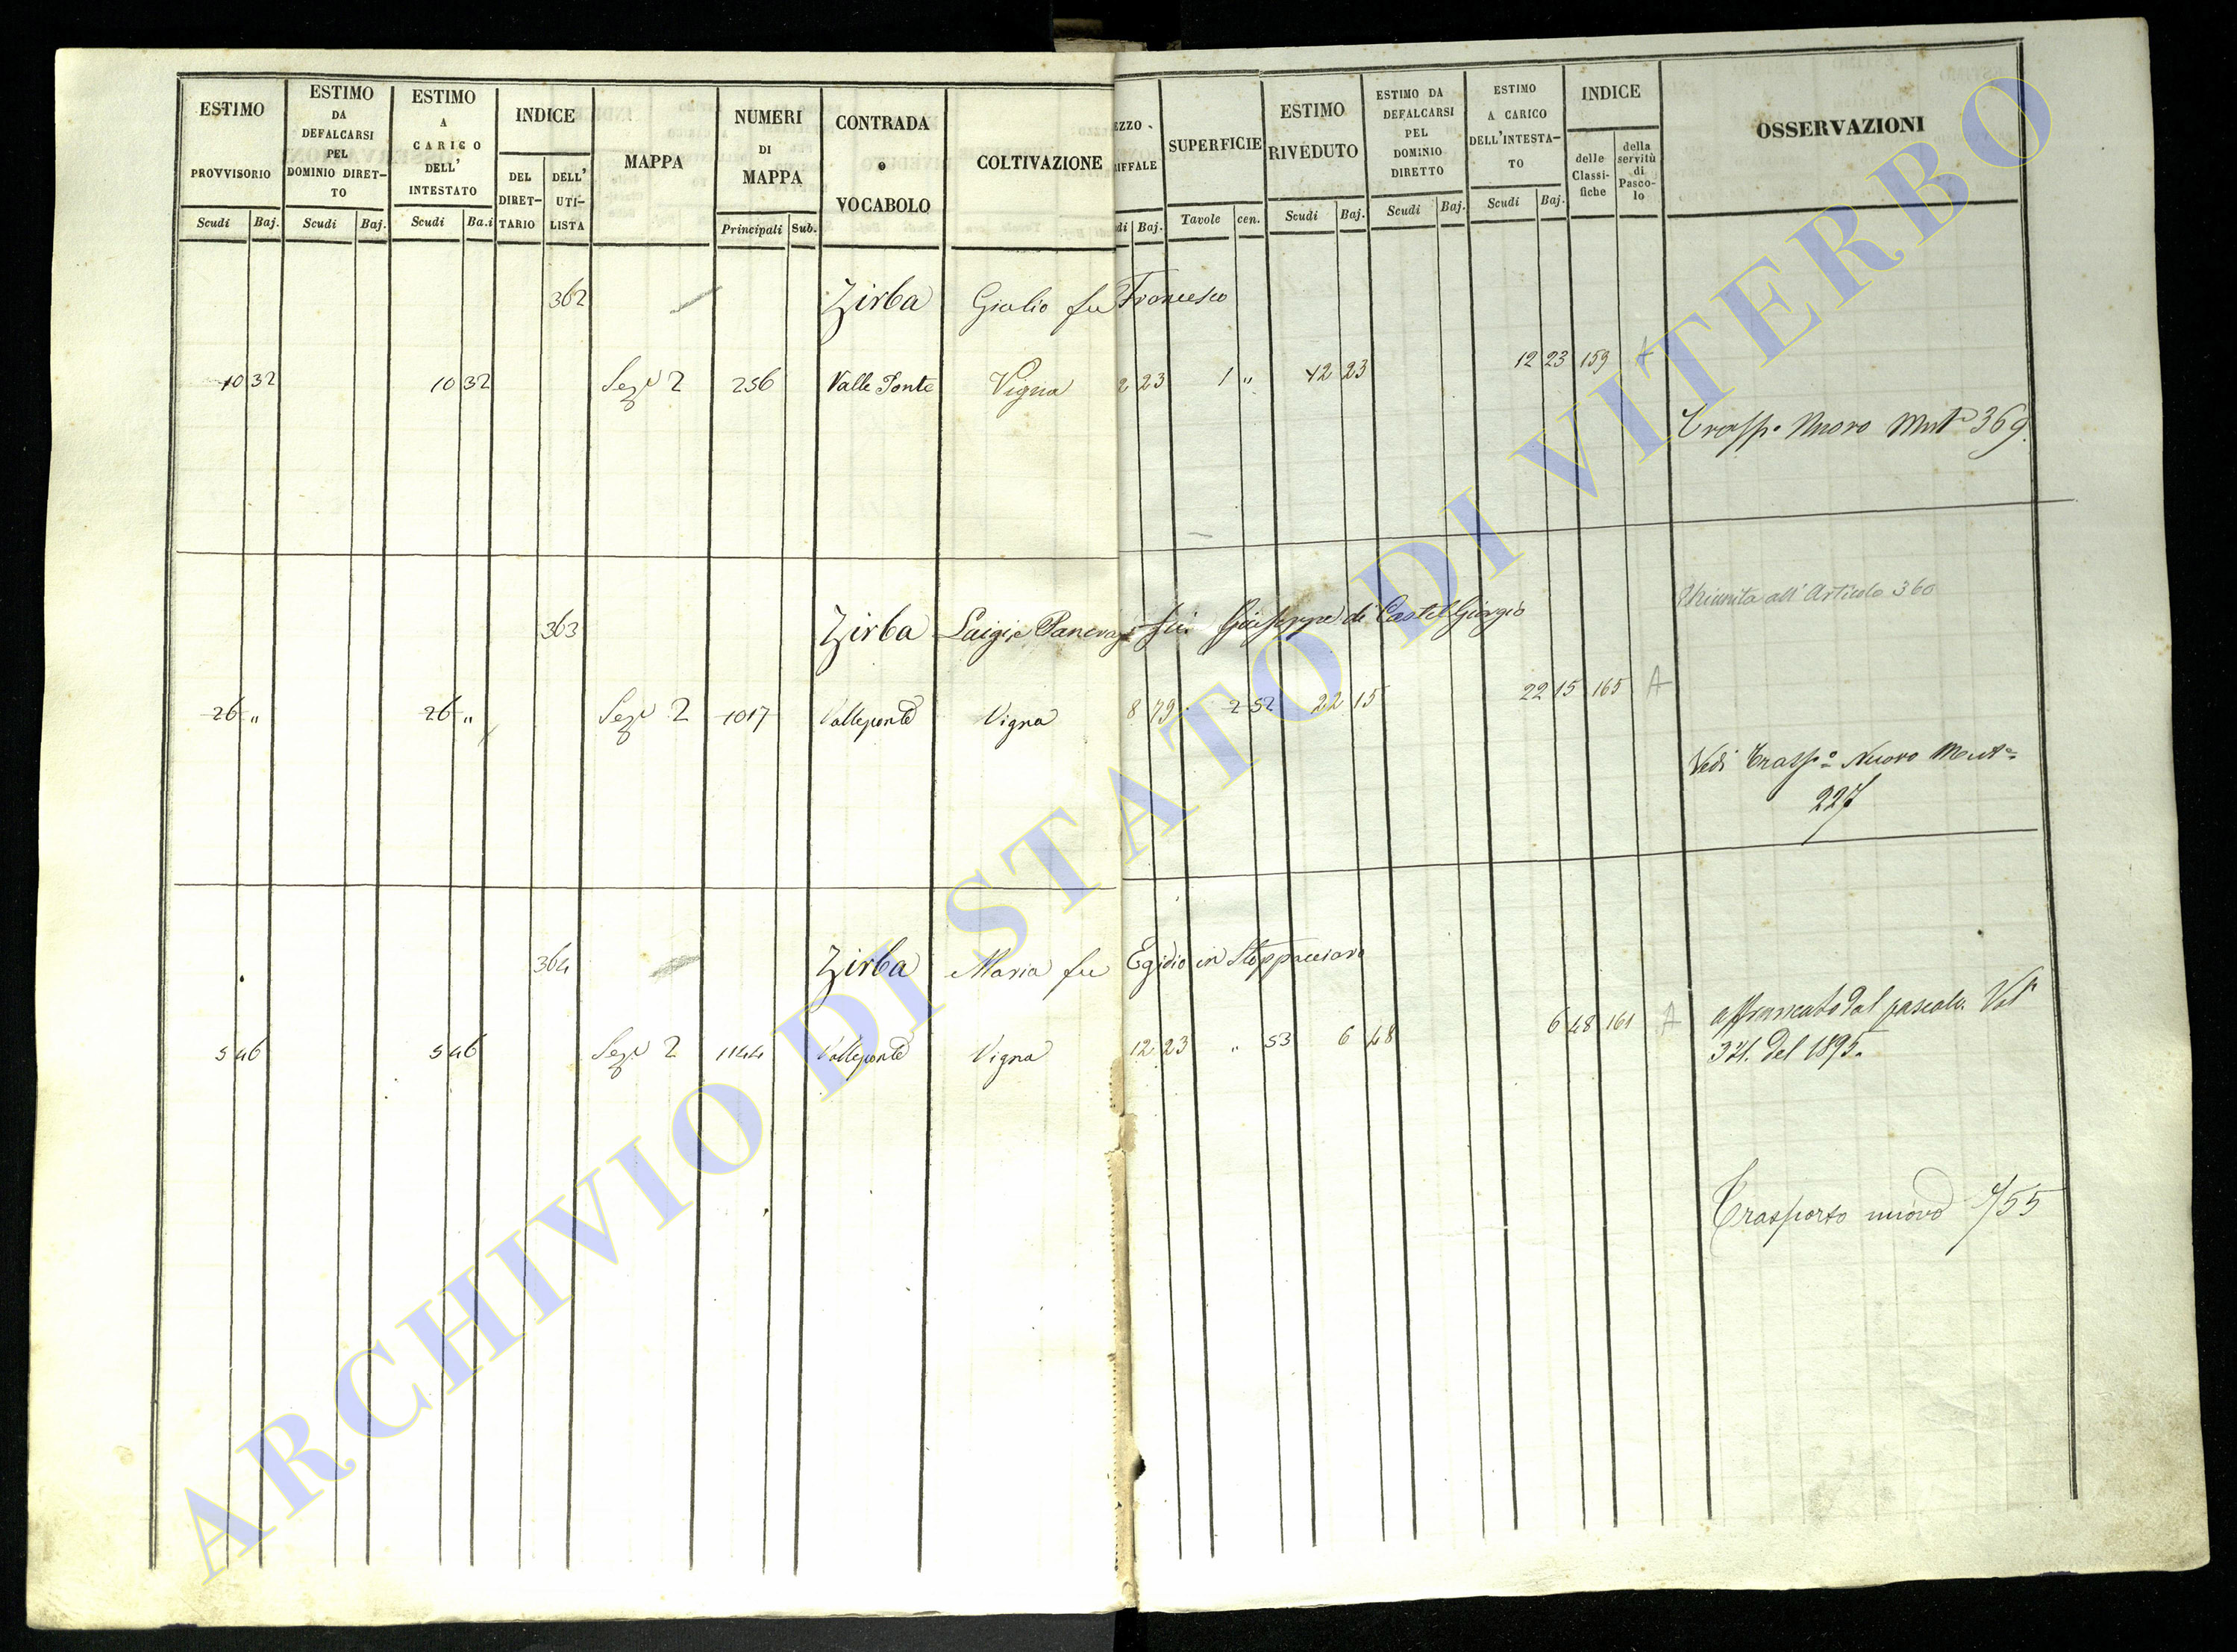 ESTIMO PROVVISORIO
Scudi Baj.
ESTIMO DA DEFALCARSI PEL DOMINIO DIRET-TO
Scudi Baj.
ESTIMO A CARICO DELL' INTESTATO
Scudi Ba.i
INDICE
DEL DIRET-TARIO
DELL' UTI-LISTA
MAPPA
NUMERI DI MAPPA
Principali Sub.
CONTRADA o VOCABOLO
COLTIVAZIONE
EZZO
IFFALE
di Baj.
SUPERFICIE
Tavole cen.
ESTIMO RIVEDUTO
Scudi Baj.
ESTIMO DA DEFALCARSI PEL DOMINIO DIRETTO
Scudi Baj.
ESTIMO A CARICO DELL'INTESTA-TO
Scudi Baj.
INDICE
delle Classi-fiche
della servitù di Pasco-lo
OSSERVAZIONI
362 Zirba Giulio fu Francesco
10 32 10 32 Seze 2 256 Valle Ponte Vigna 2 23 1 " 12 23 12 23 159 A
Trasp. Nuovo Mut 369
363 Zirba Luigi e Pancraz fu Giuseppe di Castel Giorgio
Riunita all' Articolo 360
26 " 26 " Seze 2 1017 Valleponte Vigna 8 79 2 52 22 15 22 15 165 A
Vedi Trasp.o Nuovo Mut.e
227
364 Zirba Maria fu Egidio in Stoppacciaro
5 46 5 46 Seze 2 1144 Valleponte Vigna 12 23 " 53 6 48 6 48 161 A
affrancato dal pascolo. Vol
321. del 1895.
Trasporto nuovo 455
ARCHIVIO DI STATO DI VITERBO